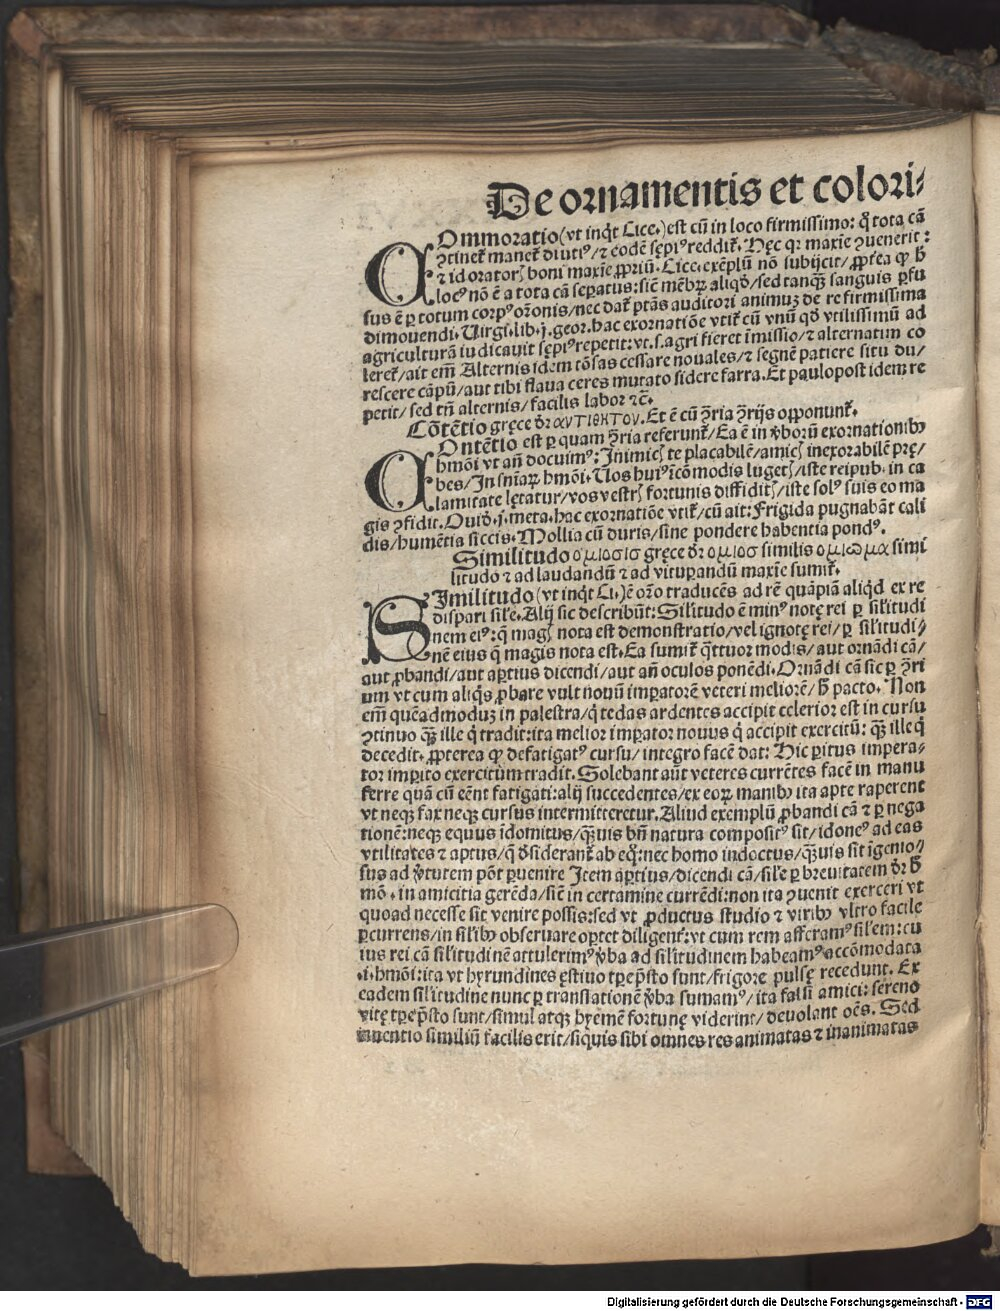 De ornamentis et colori⸗
COmmoratio (vt inqͥt Cice.) est cū in loco firmissimo: q̄ tota cā
ꝯtinet᷑ manet᷑ diutiꝰ/ ⁊ eodē sępiꝰ reddit᷑. Hęc qꝛ maxīe ꝯuenerit:
⁊ id oratorꝭ boni maxīe ꝓpriū. Cice. exēplū nō subijcit/ ꝓpterea ꝙ h̄
locꝰ nō ē a tota cā sepatus: sic̄ mēbꝝ aliqḋ/ sed tanqꝫ sanguis ꝑfu
sus ē ꝑ totum corpꝰ or̄onis/ nec dat᷑ ptās auditori animuꝫ de re firmissima
dimouendi. Uirgi. lib. j. geor. hac exornatiōe vtit᷑ cū vnū qḋ vtilissimū ad
agriculturā iudicauit sępiꝰ repetit: vt. s. agri fieret īmissio/ ⁊ alternatim co
leret᷑/ ait em̄ Alternis idem tōsas cessare nouales/ ⁊ segnē patiere situ du⸗
rescere cāpū/ aut tibi flaua ceres mutato sidere farra. Et paulopost idem re
petit/ sed tn̄ alternis/ facilis labor ⁊c̄.
Cōtētio gręce dr̄ αντιθητον. Et ē cū ꝯ̄ria ꝯ̄rijs opponunt᷑.
COntētio est ꝑ quam ꝯ̄ria referunt᷑/ Ea ē in v̓borū exornationibꝰ
hmōi vt an̄ docuimꝰ: Inimicꝭ te placabilē/ amicꝭ inexorabilē prę⸗
bes/ In sn̄iaꝝ hmōi. Uos huiꝰ īcōmodis lugetꝭ/ iste reipub. in ca
lamitate lętatur/ vos vestrꝭ fortunis diffiditꝭ/ iste solꝰ suis eo ma
gis ꝯfidit. Ouid̓. j. meta. hac exornatiōe vtit᷑/ cū ait: Frigida pugnabāt cali
dis/ humētia siccis. Mollia cū duris/ sine pondere habentia pondꝰ.
Similitudo ομιοσισ gręce dr̄ ομιοσ similis ομιωμα simi
litudo ⁊ ad laudandū ⁊ ad vitupandū maxīe sumit᷑.
SImilitudo (vt inqͥt Ci.) ē or̄o traducēs ad rē quāpiā aliqͥd ex re
dispari sil̓e. Alij sic describūt: Sil̓itudo ē minꝰ notę rei ꝑ sil̓itudi
nem eiꝰ: q̄ magꝭ nota est demonstratio/ vel ignotę rei/ ꝑ sil̓itudi⸗
nē eius q̄ magis nota est. Ea sumit᷑ qͣttuor modis/ aut ornādi cā/
aut ꝓbandi/ aut aꝑtius dicendi/ aut an̄ oculos ponēdi. Ornādi cā sic ꝑ ꝯ̄ri
um vt cum aliqͥs ꝓbare vult nouū impatorē veteri meliorē/ h̄ pacto. Non
em̄ quēadmoduꝫ in palestra/ qͥ tedas ardentes accipit celerior est in cursu
ꝯtinuo qͣꝫ ille qͥ tradit: ita melior impator nouus qͥ accipit exercitū: qͣꝫ ille qͥ
decedit. ꝓpterea ꝙ defatigatꝰ cursu/ integro facē dat: Hic ꝑitus impera⸗
tor imꝑito exercitum tradit. Solebant aūt veteres currētes facē in manu
ferre quā cū eēnt fatigati: alij succedentes/ ex eoꝝ manibꝰ ita apte raperent
vt neqꝫ fax neqꝫ cursus intermitteretur. Aliud exemplū ꝓbandi cā ⁊ ꝑ nega
tionē: neqꝫ equus īdomitus/ qͣꝫuis bn̄ natura compositꝰ sit/ idoneꝰ ad eas
vtilitates ⁊ aptus/ q̄ d̓siderant᷑ ab eq̊: nec homo indoctus/ qͣꝫuis sit īgenio⸗
sus ad v̓tutem pōt ꝑuenire Item aꝑtius/ dicendi cā/ sil̓e ꝑ breuitatem dr̄ h̄
mō. in amicitia gerēda/ sic̄ in certamine currēdi: non ita ꝯuenit exerceri vt
quoad necesse sit venire possis: sed vt ꝓductus studio ⁊ viribꝰ vltro facile
ꝑcurrens/ in sil̓ibꝰ obseruare oꝑtet diligent᷑: vt cum rem afferamꝰ sil̓em: cu
ius rei cā sil̓itudinē attulerimꝰ v̓ba ad sil̓itudinem habeamꝰ accōmodata
.i. hmōi: ita vt hyrundines ęstiuo tꝑe p̄sto sunt/ frigore pulsę recedunt. Ex
eadem sil̓itudine nunc ꝑ translationē v̓ba sumamꝰ/ ita falsi amici: sereno
vitę tꝑe p̄sto sunt/ simul atqꝫ hyemē fortunę viderint/ deuolant oēs. Sed
inuentio similiū facilis erit/ siquis sibi omnes res animatas ⁊ inanimatas
Digitalisierung gefördert durch die Deutsche Forschungsgemeinschaft - DFG